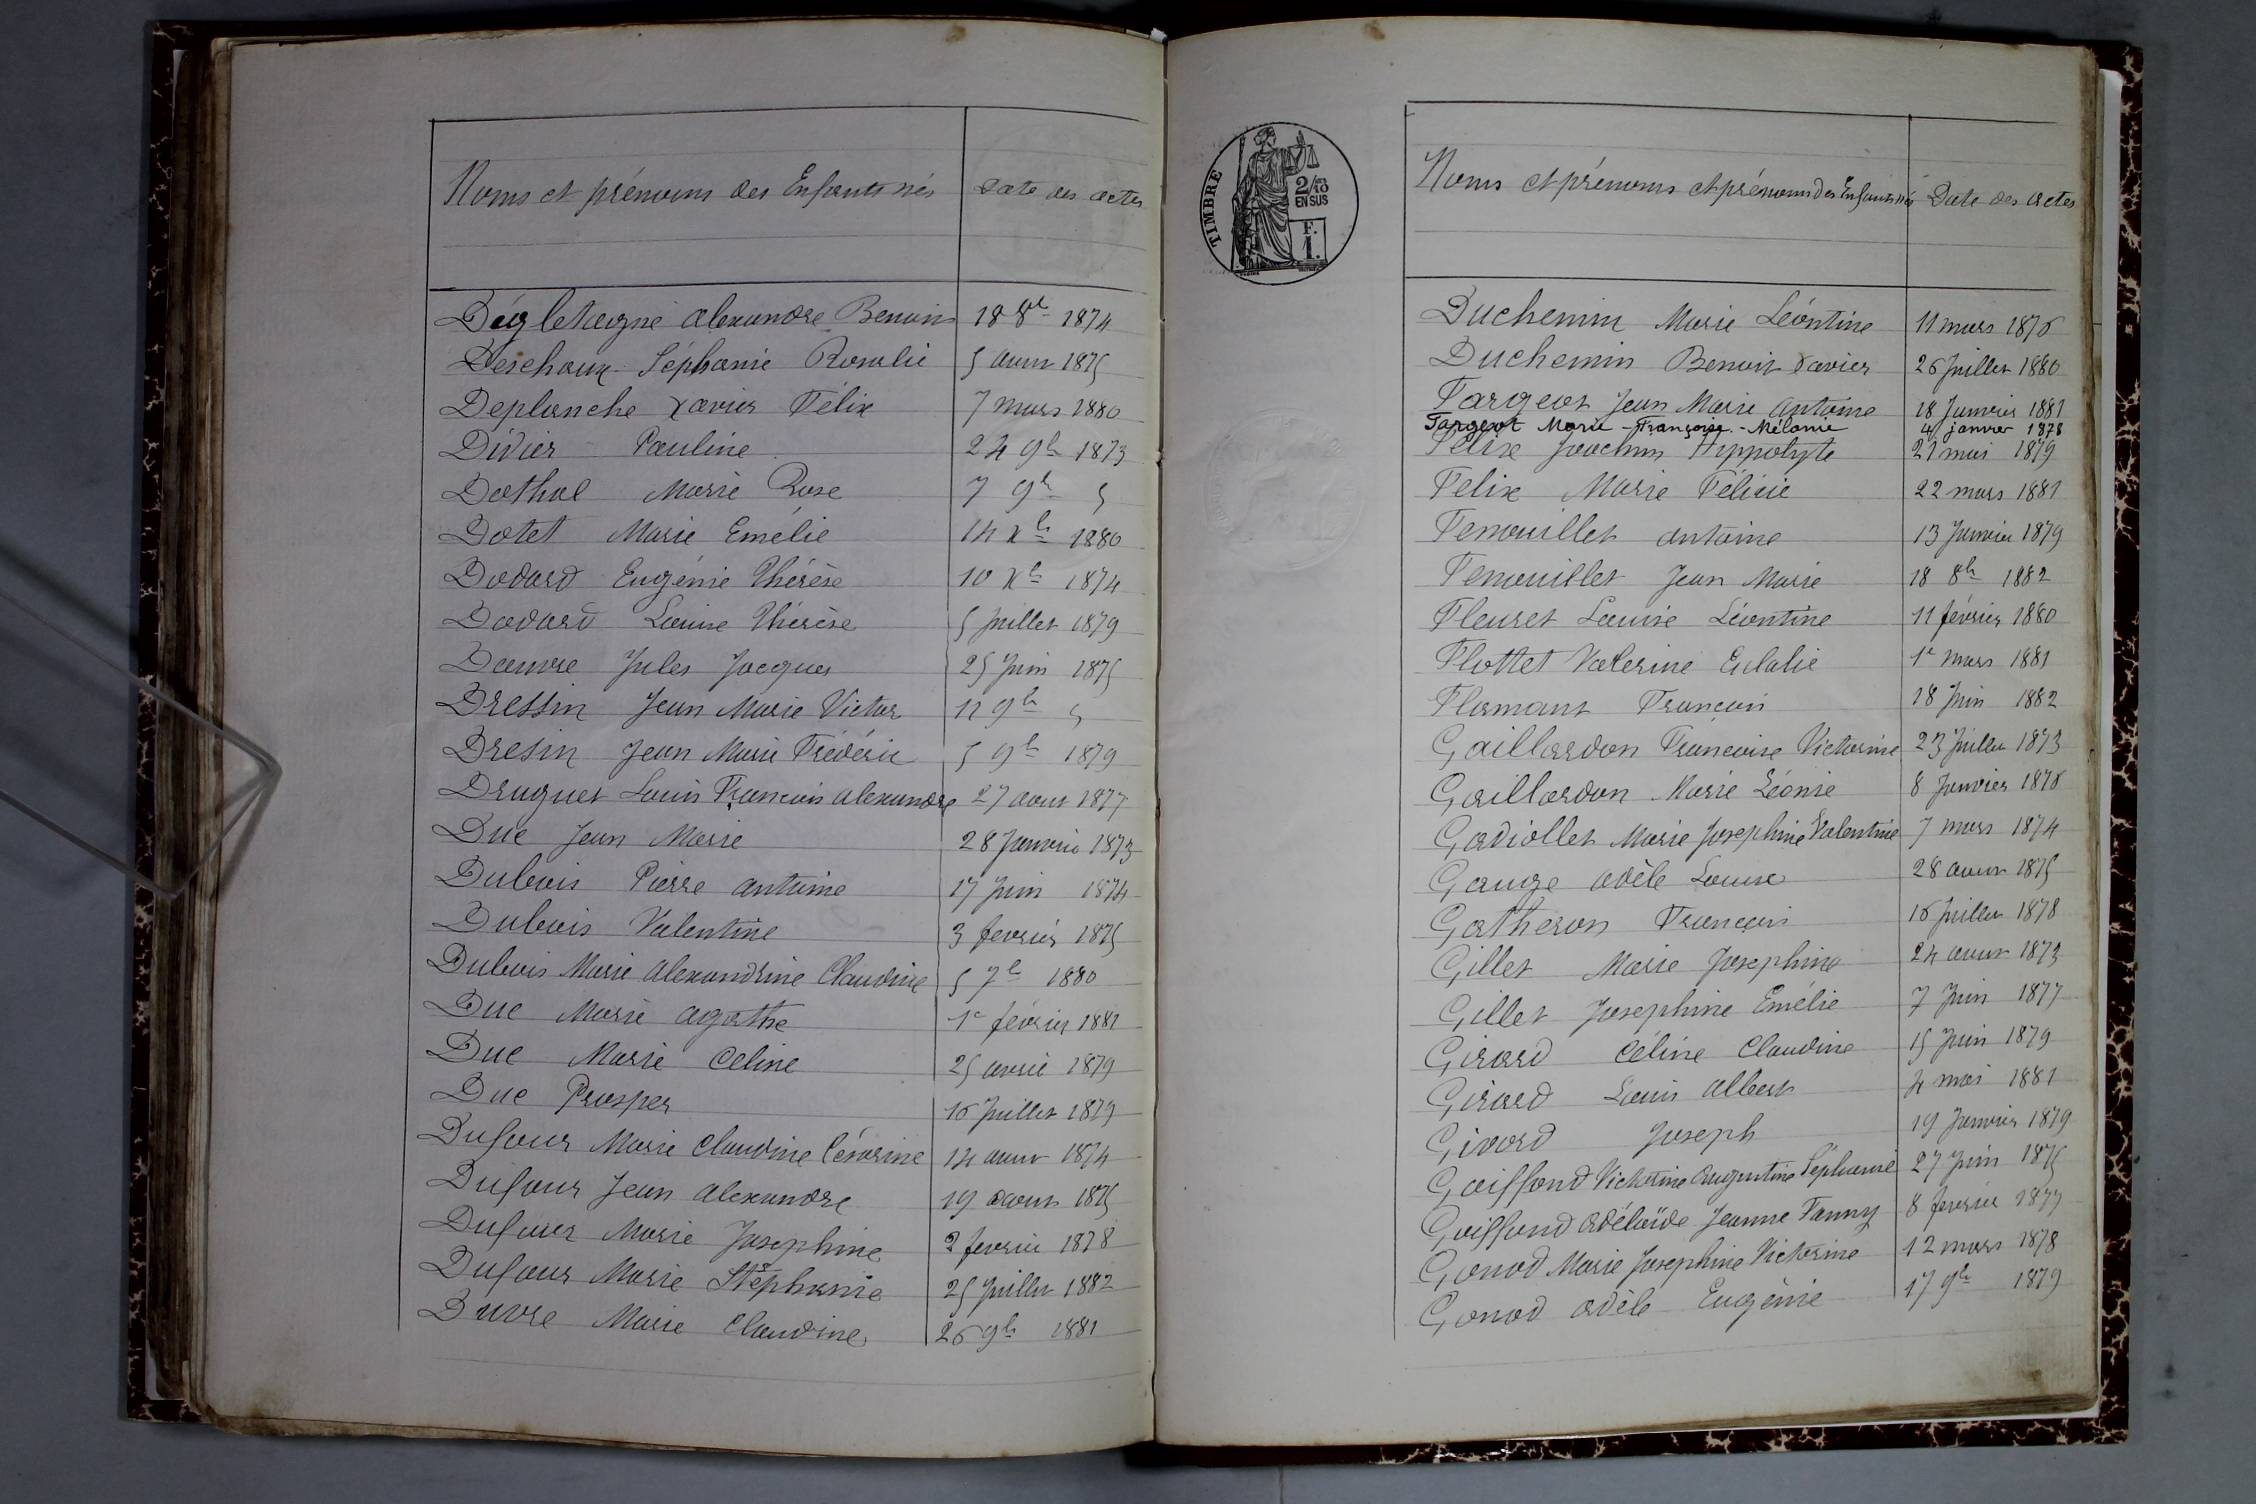 Noms et prénoms des Enfants nés Date des actes
Dégletagne alexandre Benoin 18 8e 1874
Deschaux Séphanie Rosalie 5 aout 1875
Deplanche Xavier Félix 7 mars 1880
Divier Pauline 24 9b 1873
Dothal Marie Rose 7 9b 5
Dotet Marie Emélie 14 Xb 1880
Dodard Eugénie Thérèse 10 Xb 1874
Dodard Louise Thérèse 5 Juillet 1879
Jules Jacques 25 Juin 1875
Dressin Jean Marie Victor 11 9b 5
Dresin Jean Marie Frédéric 5 9b 1879
Druguet Louis François alexandre 27 aout 1877
Duc Jean Marie 28 Janvier 1873
Dubois Pierre antoine 17 Juin 1874
Dubois Valentine 3 février 1875
Dubois Marie alexandrine Claudine 5 7b 1880
Duc Marie agathe 1e février 1881
Duc Marie Celine 25 avril 1879
Duc Prosper 16 Juillet 1879
Dufour Marie Claudine Césarine 14 aout 1874
Dufour Jean alexandre 19 aout 1875
Dufour Marie Josephine 2 fevrier 1878
Dufour Marie Stéphanie 25 Juillet 1882
Duvre Marie Claudine 26 9b 1881
TIMBRE
2/10
EN SUS
F.
1.
Noms et prénoms et prénoms des Enfants nés Date des actes
Duchemin Marie Léontine 11 mars 1876
Duchemin Benoit Xavier 26 Juillet 1880
Fargeot Jean Marie antoine 18 Janvier 1881
Fargeot Marie - Françoise - Mélanie 4 janvier 1878
Félix Joachim Hippolyte 21 mai 1879
Felix Marie Félicie 22 mars 1881
Fenouillet antoine 13 Janvier 1879
Fenouillet Jean Marie 18 8b 1882
Fleuret Louise Léontine 11 février 1880
Flottet Valerine Eulalie 1e mars 1881
Flamant François 18 Juin 1882
Gaillardon Francoise Victorine 23 Juillet 1873
Gaillardon Marie Léonie 8 Janvier 1878
Gadiollet Marie Josephine Valentine 7 mars 1874
Gauge adèle Louise 28 aout 1875
Gatheron François 16 Juillet 1878
Gillet Marie Josephine 24 aout 1873
Gillet Josephine Emélie 7 Juin 1877
Girard Céline Claudine 15 Juin 1879
Girard Louis albert 4 mai 1881
Givord Joseph 19 Janvier 1879
Goiffond Victorine augustine Séphanie 27 Juin 1875
Goiffond adélaïde Jeanne Fanny 8 fevrier 1877
Gonod Marie Josephine Victorine 12 mars 1878
Gonod adèle Eugénie 17 9b 1879